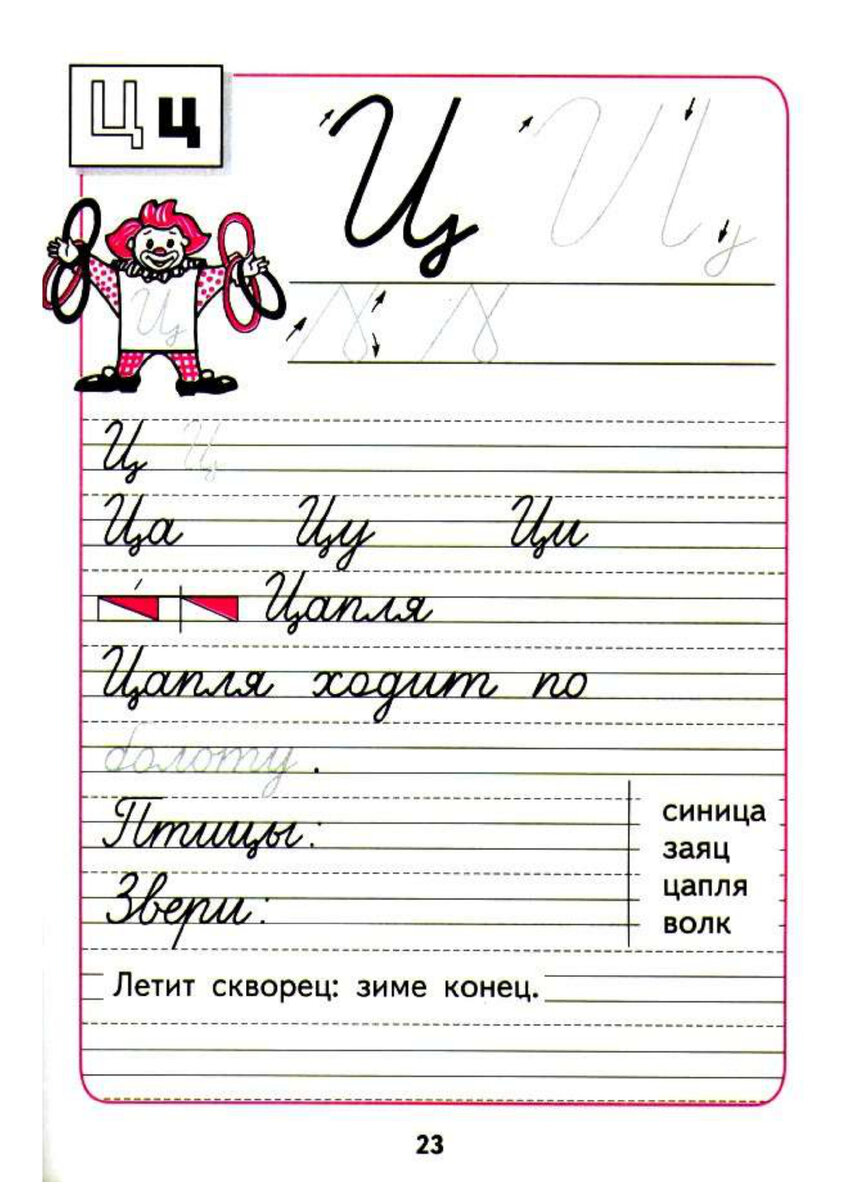 Ц ц
Ц Ц
Ц
Ц Ц
Ца Цу Ци
Цапля
Цапля ходит по
болоту.
Птицы:
Звери:
синица
заяц
цапля
волк
Летит скворец: зиме конец.
23